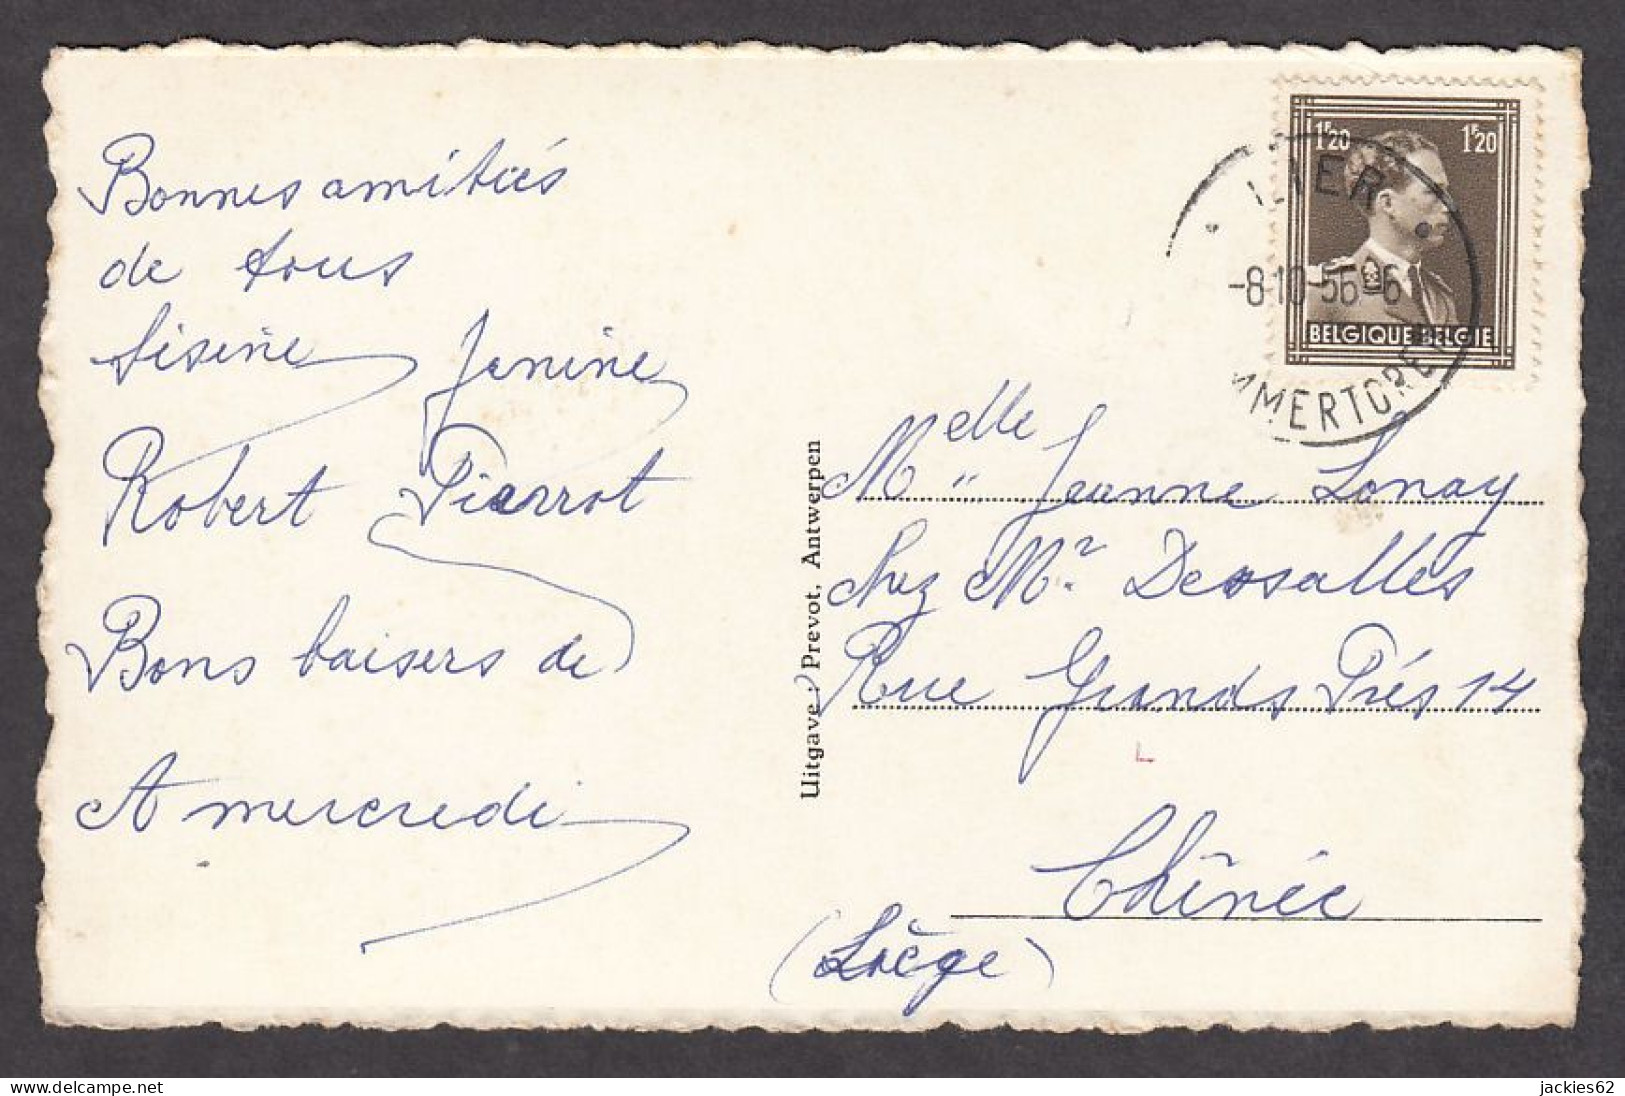 Bonnes amitiés
de tous
Janine
Robert Pierrot
Bons baisers de
A mercredi
Uitgave : Prevot, Antwerpen
1F20 1F20
BELGIQUE-BELGIE
LIER
-8-10-56 6
MMERTORE
Melle Jeanne Lonay
chez Mr Dessalles
Rue Grands Prés 14
Chînée
(Liège)
jackies62
delcampe.net